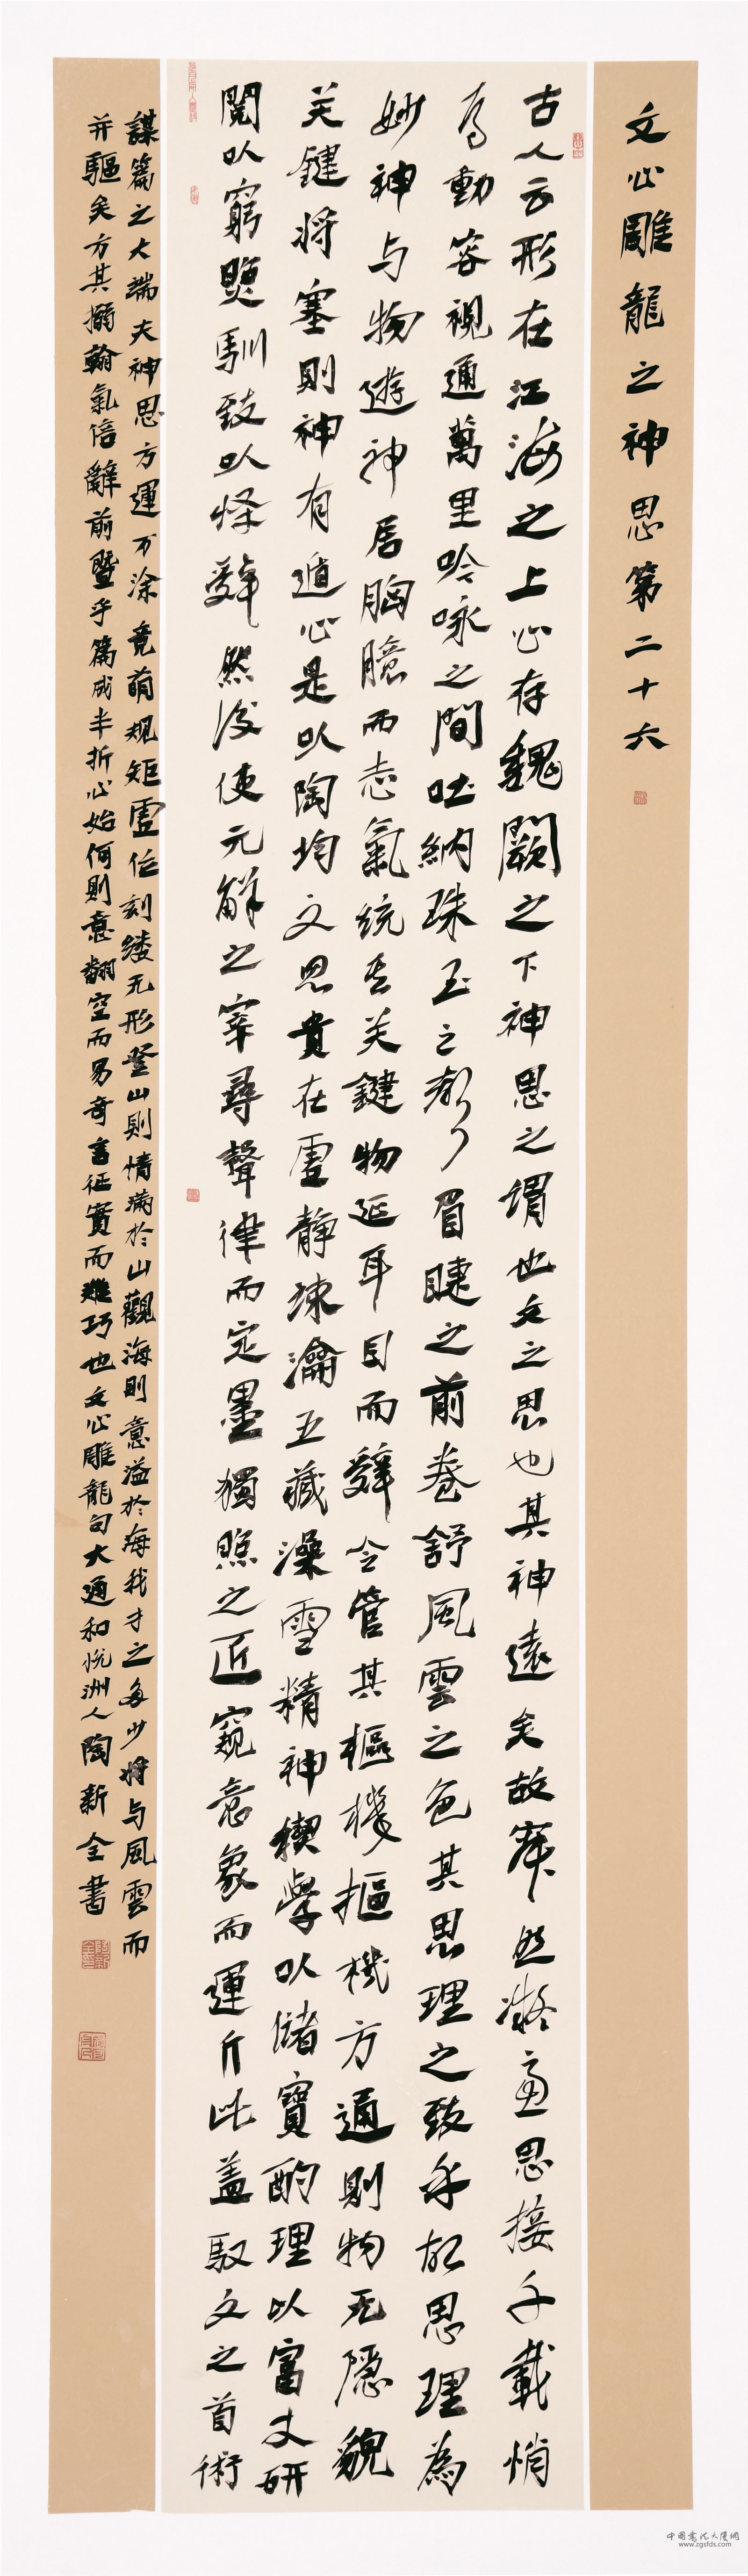 文心雕龍之神思第二十六
古人云形在江海之上心存魏闕之下神思之謂也文之思也其神遠矣故寂然凝慮思接千載悄
焉動容視通萬里吟咏之間吐納珠玉之聲眉睫之前卷舒風雲之色其思理之致乎故思理為
妙神与物遊神居胸臆而志氣統其关鍵物延耳目而辭令管其樞機樞機方通則物无隱貌
关鍵将塞則神有遁心是以陶均文思貴在虛静疎瀹五藏澡雪精神積學以儲寶酌理以富才研
閱以窮照馴致以怿辭然後使元解之宰尋聲律而定墨獨照之匠窺意象而運斤此蓋馭文之首術
謀篇之大端夫神思方運万涂竟萌規矩虛位刻鏤无形登山則情滿於山觀海則意溢於海我才之多少将与風雲而
并驅矣方其搦翰氣倍辭前暨乎篇成半折心始何則意翻空而易奇言征實而難巧也文心雕龍句大通和悦洲人陶新全書
中國書法大廈網
www.zgsfds.com